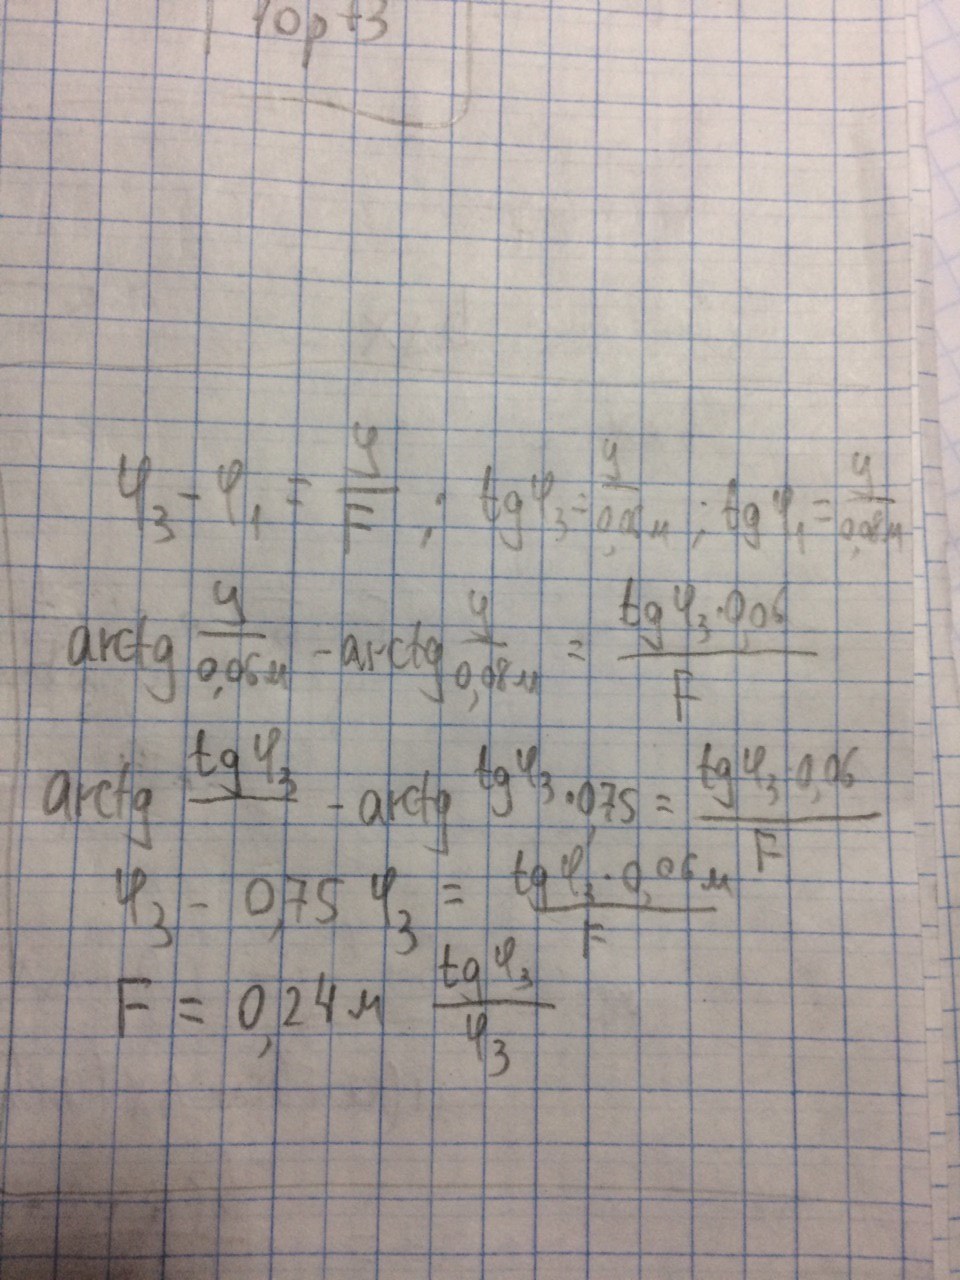 φ₃ - φ₁ = y/F ; tg φ₃ = y/0,06м ; tg φ₁ = y/0,08м
arctg y/0,06м - arctg y/0,08м = tg φ₃·0,06/F
arctg tg φ₃ - arctg tg φ₃·0,75 = tg φ₃·0,06/F
φ₃ - 0,75 φ₃ = tg φ₃·0,06м/F
F = 0,24м tg φ₃/φ₃